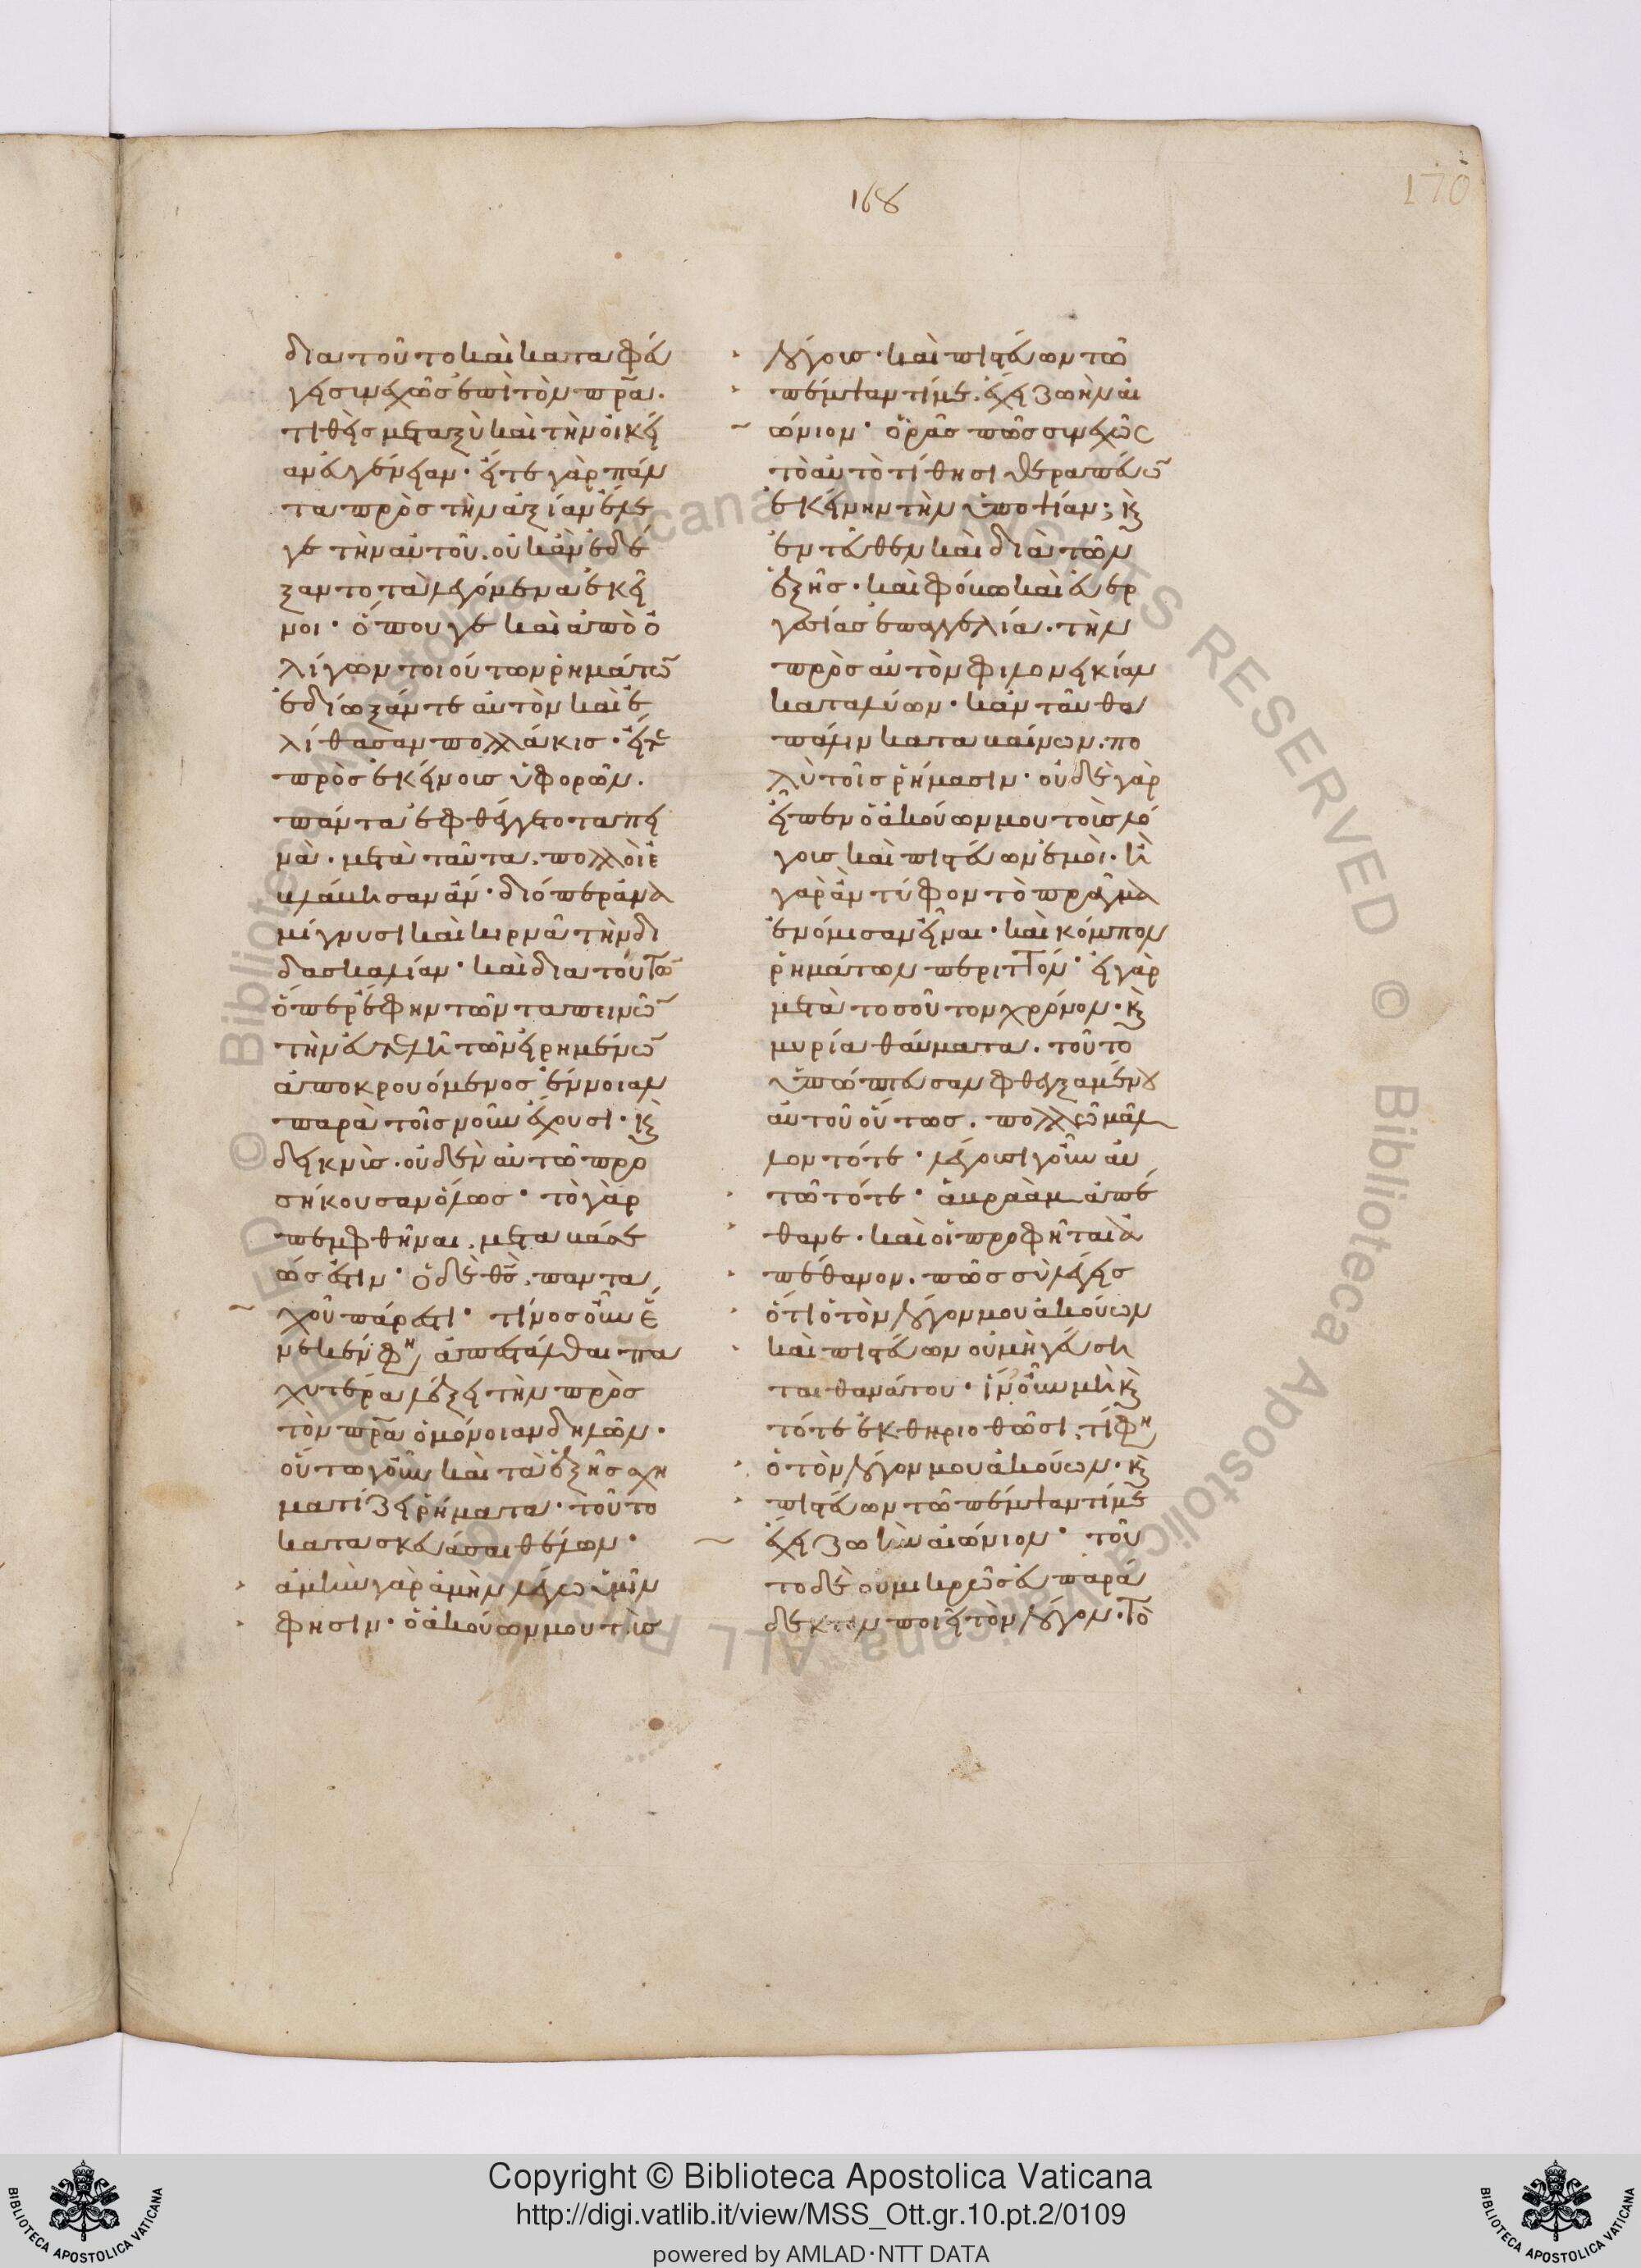 168
170
διατοῦτο καὶ καταφεύ
γει συνεχῶς ἐπὶ τὸν πρα̅.
τιθεὶς μεταξὺ καὶ τὴν οἰκεί
αν εὐγένειαν· εἴτε γὰρ πάν
τα πρὸς τὴν ἀξίαν ἔλε
γε τὴν αὐτοῦ. οὐκ ἂν ἐδέ
ξαντο τὰ λεγόμενα ἐκεῖ
νοι· ὅπου γε καὶ ἀπὸ ὀ
λίγων τοιούτων ῥημάτω̅
ἐδίωξάν τε αὐτὸν καὶ ἐ
λίθασαν πολλάκις· εἴτε
πρὸς ἐκείνοις ὑφορῶν.
πάντα ἐφθέγγετο ταπει
νὰ. μετὰ ταῦτα. πολλοὶ ἐ
βλάβησαν ἄν· διόπερ ἀνα
μίγνυσι καὶ κιρνᾶ τὴν δι
δασκαλίαν· καὶ διὰ τούτω̅
ὅπερ ἔφην τῶν ταπεινῶ̅
τὴν εὐτελῆ τῶν εἰρημένω̅
ἀποκρουόμενος ἔννοιαν
παρὰ τοῖς νοῦν ἔχουσι. κ̀
δεικνὺς. οὐδὲν αὐτῶ προ
σήκουσαν ὅλως· τὸ γὰρ
πεμφθῆναι. μεταβάσε
ώς ἐστιν· ὁ δὲ θς̅. παντα
χοῦ πάρεστι· τίνος οὖν ἕ
νεκέν φη ἀπεστάλθαι πα
χυτέρα λέξει τὴν πρὸς
τὸν πρα̅ ὁμόνοιαν δηλῶν.
οὕτω γοῦν καὶ τὰ ἑξῆς σχη
ματίζει ῥήματα. τοῦτο
κατασκευάσαι θέλων·
ἀμὴν γὰρ ἀμὴν λέγω ὑμῖν
φησιν· ὁ ἀκούων μου τοὺς
λόγους· καὶ πιστεύων τῶ
πέμψαντί με. ἔχει ζωὴν αἰ
ώνιον· ὁρᾶς πῶς συνεχῶς
τὸ αὐτὸ τίθησι θεραπεύω̅
ἐκείνην τὴν ὑποψίαν; κ̀
ἐντεῦθεν καὶ διὰ τῶν
ἑξῆς· καὶ φόβω καὶ εὐερ
γεσίας ἐπαγγελία. τὴν
πρὸς αὐτὸν φιλονεικίαν
καταλύων· κἀνταῦθα
πάλιν καταβαίνων. πο
λὺ τοῖς ῥήμασιν· οὐδὲ γὰρ
εἶπεν ὁ ἀκούων μου τοὺς λό
γους καὶ πιστεύων ἐμοὶ· ἦ
γὰρ ἂν τύφον τὸ πρᾶγμα
ἐνόμισαν εἶναι· καὶ κόμπον
ῥημάτων περιττόν· εἰ γὰρ
μετὰ τοσοῦτον χρόνον· κ̀
μυρία θαύματα. τοῦτο
ὑπώπτευσαν φθεγξαμένου
αὐτοῦ οὕτως. πολλῶ μᾶλ
λον τότε· λέγουσι γοῦν αὐ
τῶ τότε· ἀβραὰμ ἀπέ
θανε· καὶ οἱ προφῆται ἀ
πέθανον. πῶς σὺ λέγεις
ὅτι ὁ τὸν λόγον μου ἀκούων
καὶ πιστεύων οὐ μὴ γεύση
ται θανάτου· ἵν' οὖν μὴ κ̀
τότε ἐκθηριωθῶσι, τί φη
ὁ τὸν λόγον μου ἀκούων· κ̀
πιστεύων τῶ πέμψαντί με
ἔχει ζωὴν αἰώνιον· τοῦ
το δὲ οὐ μικρῶς εὐπαρά
δεκτον ποιεῖ τὸν λόγον. τὸ
Copyright © Biblioteca Apostolica Vaticana
http://digi.vatlib.it/view/MSS_Ott.gr.10.pt.2/0109
powered by AMLAD·NTT DATA
BIBLIOTECA APOSTOLICA VATICANA
BIBLIOTECA APOSTOLICA VATICANA